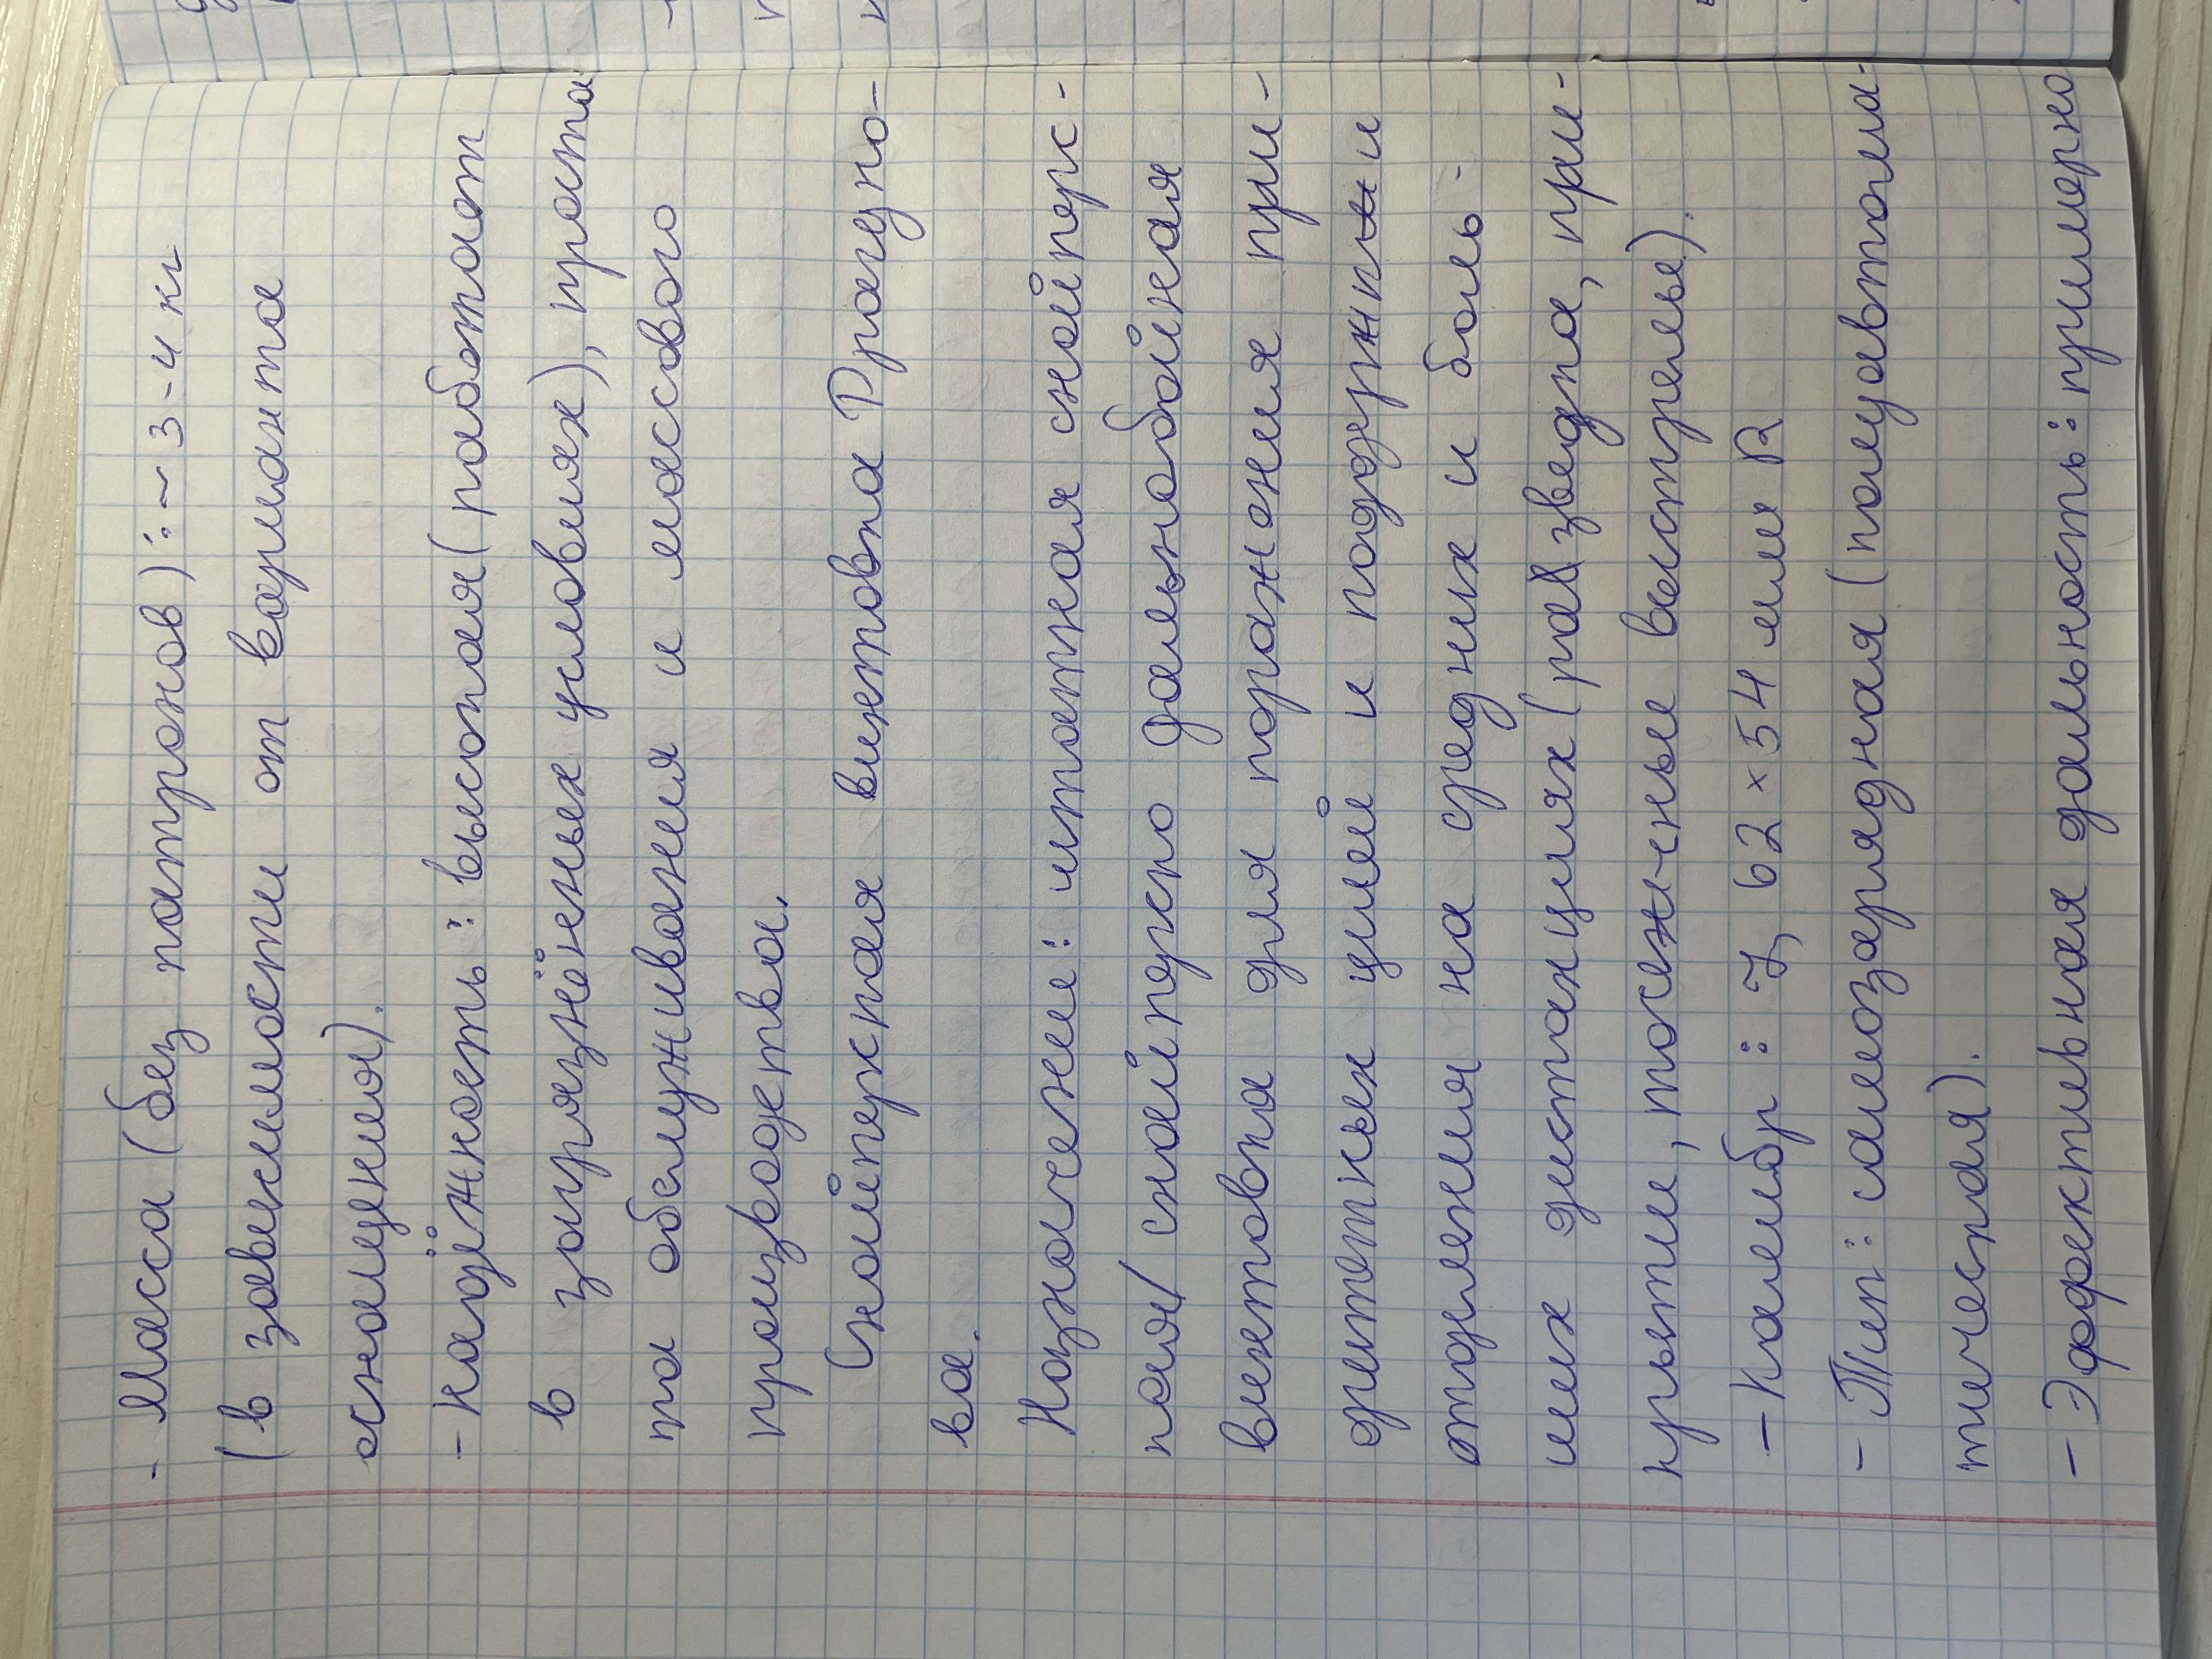 - Масса (без патронов): ~ 3-4 кг
(в зависимости от варианта
оснащения).
- Надёжность: высокая (работает
в загрязнённых условиях), проста
та обслуживания и массового
производства.
Снайперская винтовка Драгуно-
ва.
Назначение: штатная снайперс-
кая/ снайперско дальнобойная
винтовка для поражения при-
оритетных целей и поддержки и
отделения на средних и боль-
ших дистанциях (развведка, при-
крытие, точечные выстрелы).
- Калибр: 7,62×54 мм R
- Тип: самозарядная (полуавтома-
тическая).
- Эффективная дальность: примерно